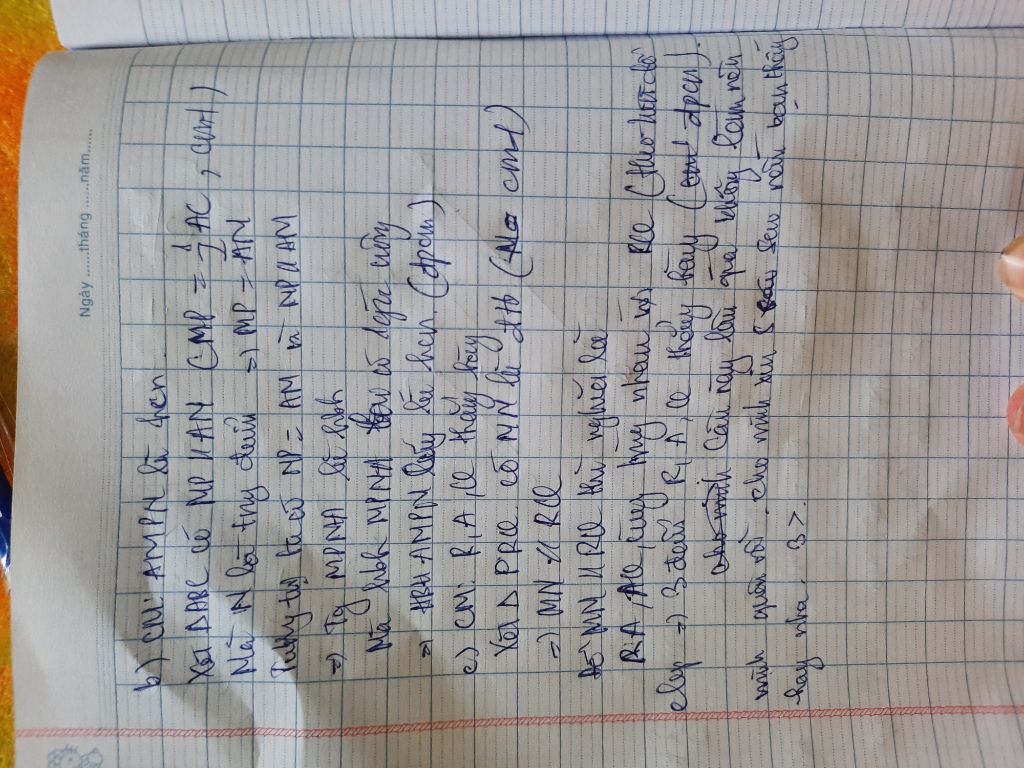 Ngày ......tháng ......năm......
b) CM: AMPN là hcn
Xét Δ ABC có MP // AN (MP = 1/2 AC, cmt)
Mà N là trung điểm => MP = AN
Tương tự ta có NP = AM và NP // AM
=> Tg MPNA là hbh
Mà hbh MPNA có góc vuông
=> HBH AMPN là hcn (đpcm)
c) CM: R, A, Q thẳng hàng
Xét Δ PRQ có MN là đtb (cmt)
=> MN // RQ
MN // RQ thì nghĩa là
RA, AQ cùng trùng nhau và RQ (theo
=> 3 điểm R, A, Q thẳng hàng (đpcm).
Câu này lâu quá không làm nên
mình quên rồi. cho mình xin 5 sao nếu bạn thấy
hay nha. 3>.